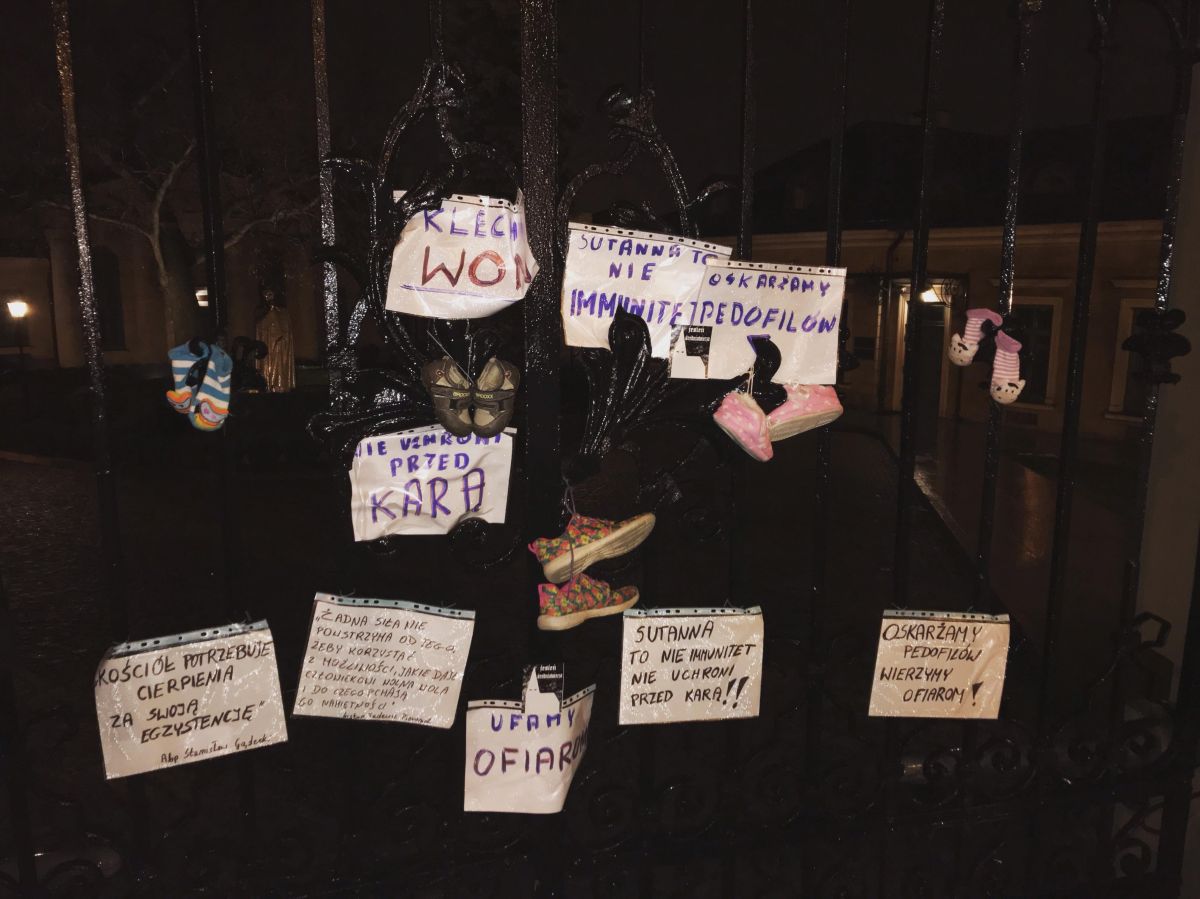 KLECH
WON
SUTANNA TO
NIE
IMMUNITET
OSKARŻAMY
PEDOFILÓW
NIE UCHRONI
PRZED
KARĄ
KOŚCIÓŁ POTRZEBUJE
CIERPIENIA
ZA SWOJĄ
EGZYSTENCJĘ"
Abp Stanisław Gądecki
„ŻADNA SIŁA NIE
POWSTRZYMA OD TEGO,
ŻEBY KORZYSTAĆ
Z MOŻLIWOŚCI, JAKIE DAJE
CZŁOWIEKOWI WOLNA WOLA
I DO CZEGO PCHAJĄ
GO NAMIĘTNOŚCI"
UFAMY
OFIAROM
SUTANNA
TO NIE IMMUNITET
NIE UCHRONI
PRZED KARĄ!!
OSKARŻAMY
PEDOFILÓW
WIERZYMY
OFIAROM!